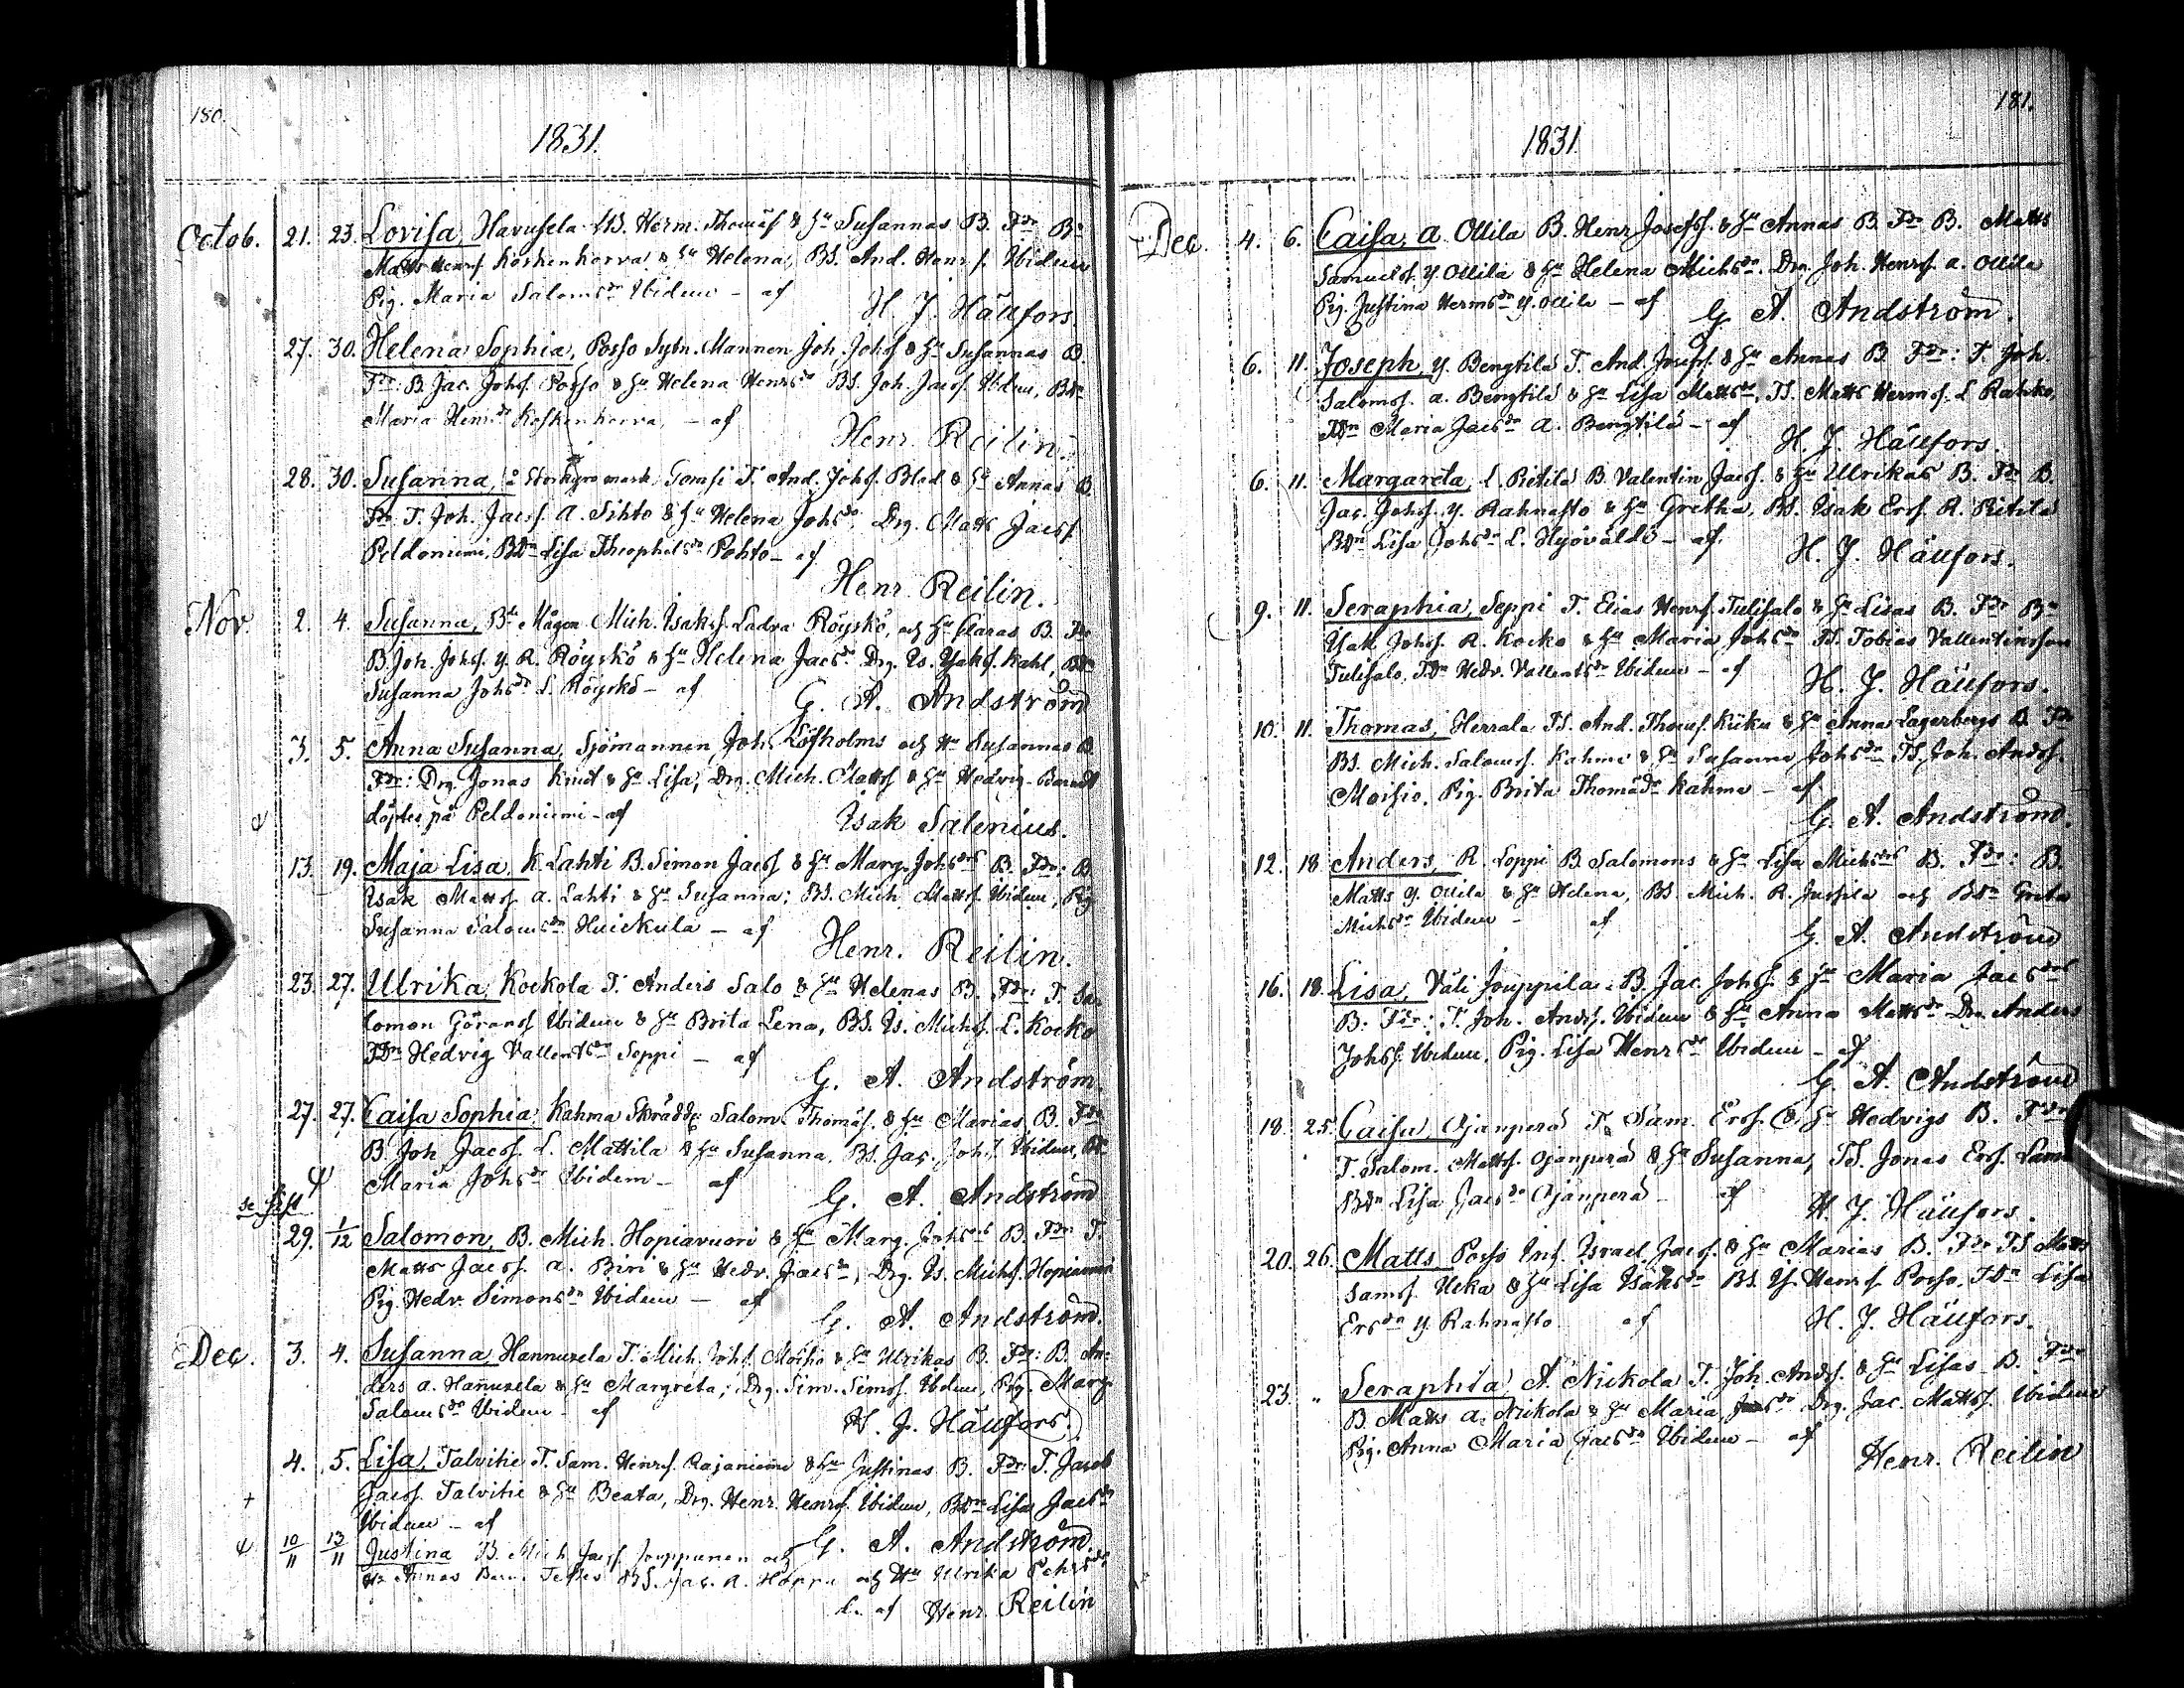 180.
1831.
Octob. 21. 23. Lovisa, Havusela LB. Herm. Thomæs & Hu Susannas B. Fdr B:
Matts Henrs Koskenkorva & Hu Helena, BS. And. Henrs. Ibidem
Pig. Maria Salomsdr Ibidem - af H. J. Häufors.
27. 30. Helena Sophia, Posso Sytn. Mannen Joh. Johs & Hu Susannas B.
Fdr: B. Jac. Johss. Posso & Hu Helena Henrsdr BS. Joh. Jacss. Ibidem, BDr
Maria Henrsdr Koskenkorva, - af Henr. Reilin.
28. 30. Susanna, å Storkyro mark Tomsi T. And. Johss. Blad & Hu Annas B.
Fdr. T. Joh. Jacss. A. Sihto & Hu Helena Johsdr. Drg. Matts Jacss
Peldoniemi, BDr Lisa Theophelsdr Pohto - af
Henr. Reilin.
Nov. 2. 4. Susanna, Bde Mågen Mich. Isakss. Ladva Röyskö, och Hu Claras B. Fdr
B. Joh. Johss. Y. R. Röyskö & Hu Helena Jacsdr. Drg. Is. Isakss. Kahl, BDr
Susanna Johsdr L. Röyskö - af G. A. Andström
3. 5. Anna Susanna, Sjömannen Joh. Löfholms och Hu Susannas B.
Fdr: Drg. Jonas Knut & Hu Lisa, Drg. Mich. Matts & Hu Hedvig - Barnet
döptes på Peldoniemi - af Isak Salenius.
13. 19. Maja Lisa, K. Lahti B. Simon Jacss & Hu Marg. Johsdrs B. Fdr: B.
Isak Matts. A. Lahti & Hu Susanna; BS. Mich Matts. Ibidem, Pig
Susanna Salomsdr Huickula - af Henr. Reilin.
23. 27. Ulrika, Kockola T. Anders Salo & Hu Helenas B. Fdr: T. Sa-
lomon Görans Ibidem & Hu Brita Lena, BS. Is. Michss. L. Kocko
TDr Hedvig Vallentsdr Seppi - af
G. A. Andström.
27. 27. Caisa Sophia, Kahma Skrädd. Salom. Thomæs. & Hu Marias B. Fdr
B. Joh Jacss. L. Mattila & Hu Susanna, BS. Jac. Johss. Ibidem, Pig
Maria Johsdr Ibidem - af G. A. Andström
29. 1/12 Salomon, B. Mich. Hopiavuori & Hu Marg. Johsdrs B. Fdr: T.
Matts Jacss. A. Biri & Hu Hedv. Jacsdr, Drg. Is. Michss. Hopiavuori
Pig. Hedv. Simonsdr Ibidem - af G. A. Andström.
Dec. 3. 4. Susanna, Hannuxela T. Mich. Johs. Moisio & Hu Ulrikas B. Fdr: B. An-
ders A. Hanuxela & Hu Margreta; Drg. Sim. Simss. Ibidem, Pig. Marg
Salomsdr Ibidem - af H. J. Häufors.
4. 5. Lisa, Talvitie T. Sam. Henrs. Rajaniemi & Hu Justinas B. Fdr: T. Jacob
Jacss. Talvitie & Hu Beata, Drg. Henr. Henrs. Ibidem, BDr Lisa Jacsdr
Ibidem - af G. A. Andström.
10/11 13/11 Justina B. Mich Jacss Jouppunen och
Hu Annas Barn. Testes BS. Jac. A. Hoppa och Hu Ulrika
L. af Henr. Reilin
181.
1831
Dec. 4. 6. Caisa, A. Ollila B. Henr Josefss. & Hu Annas B. Fdr B. Matts
Samuelss. Y. Ollila & Hu Helena Michsdr. Drg. Joh. Henrs. A. Ollila
Pig. Justina Hermsdr Y. Ollila - af G. A. Andström.
6. 11. Joseph, Y. Bengtilä T. And. Josefs. & Hu Annas B. Fdr: T. Joh
Salomss. A. Bengtilä & Hu Lisa Mattsdr, TS. Matts Hermss. L. Rahko,
TDr Maria Jacsdr A. Bengtilä - af H. J. Häufors.
6. 11. Margareta, L. Pietilä B. Valentin Jacss. & Hu Ulrikas B. Fdr B.
Jac. Johss. Y. Rahnasto & Hu Gretha, BS. Isak Erss. R. Pitilä
BDr Lisa Johsdr L. Hyövälti - af. H. J. Häufors.
9. 11. Seraphia, Seppi T. Elias Henrs. Tulisalo & Hu Lisas B. Fdr Bn
Isak Johss. R. Kocko & Hu Maria Johsdr TS. Tobias Vallentinsson
Tulisalo, TDr Hedv. Vallentsdr Ibidem - af H. J. Häufors.
10. 11. Thomas, Herrala TS. And. Thomss. Kiiku & Hu Anna Lagerbergs B. Fdr
BS. Mich. Salomss. Kahma & Hu Susanna Johsdr TS. Joh. Andss.
Moisio, Pig. Brita Thomædr Kahma - af
G. A. Andström.
12. 18 Anders, R. Loppi B. Salomons & Hu Lisa Michsdrs B. Fdr: B.
Matts Y. Ollila & Hu Helena, BS. Mich. R. Juppila och BDr Greta
Michsdr Ibidem - af
G. A. Andström
16. 18. Lisa, Väli Jouppila: B. Jac. Johss. & Hu Maria Jacsdrs
B. Fdr: T. Joh. Andss. Ibidem & Hu Anna Mattsdr Drg. Anders
Johss. Ibidem. Pig. Lisa Henrsdr Ibidem - af
G. A. Andström
18. 25. Caisa, Ojanperä T. Sam. Erss. & Hu Hedvigs B. Fdr
T. Salom. Mattss. Ojanperä & Hu Susanna, TS. Jonas Erss.
BDr Lisa Jacsdr Ojanperä - af H. J. Häufors.
20. 26. Matts Posso Inh. Israel Jacss. & Hu Marias B. Fdr TS Matts
Samss. Ucka & Hu Lisa Isaksdr BS. Is. Henrs. Posso. TDr Lisa
Ersdr Y. Rahnasto. af H. J. Häufors.
23. " Seraphia, A. Nickola T. Joh. Andss. & Hu Lisas B. Fdr
B. Matts A. Nickola & Hu Maria Drg. Jac. Mattss. Ibidem
Pig. Anna Maria Jacsdr Ibidem - af
Henr. Reilin